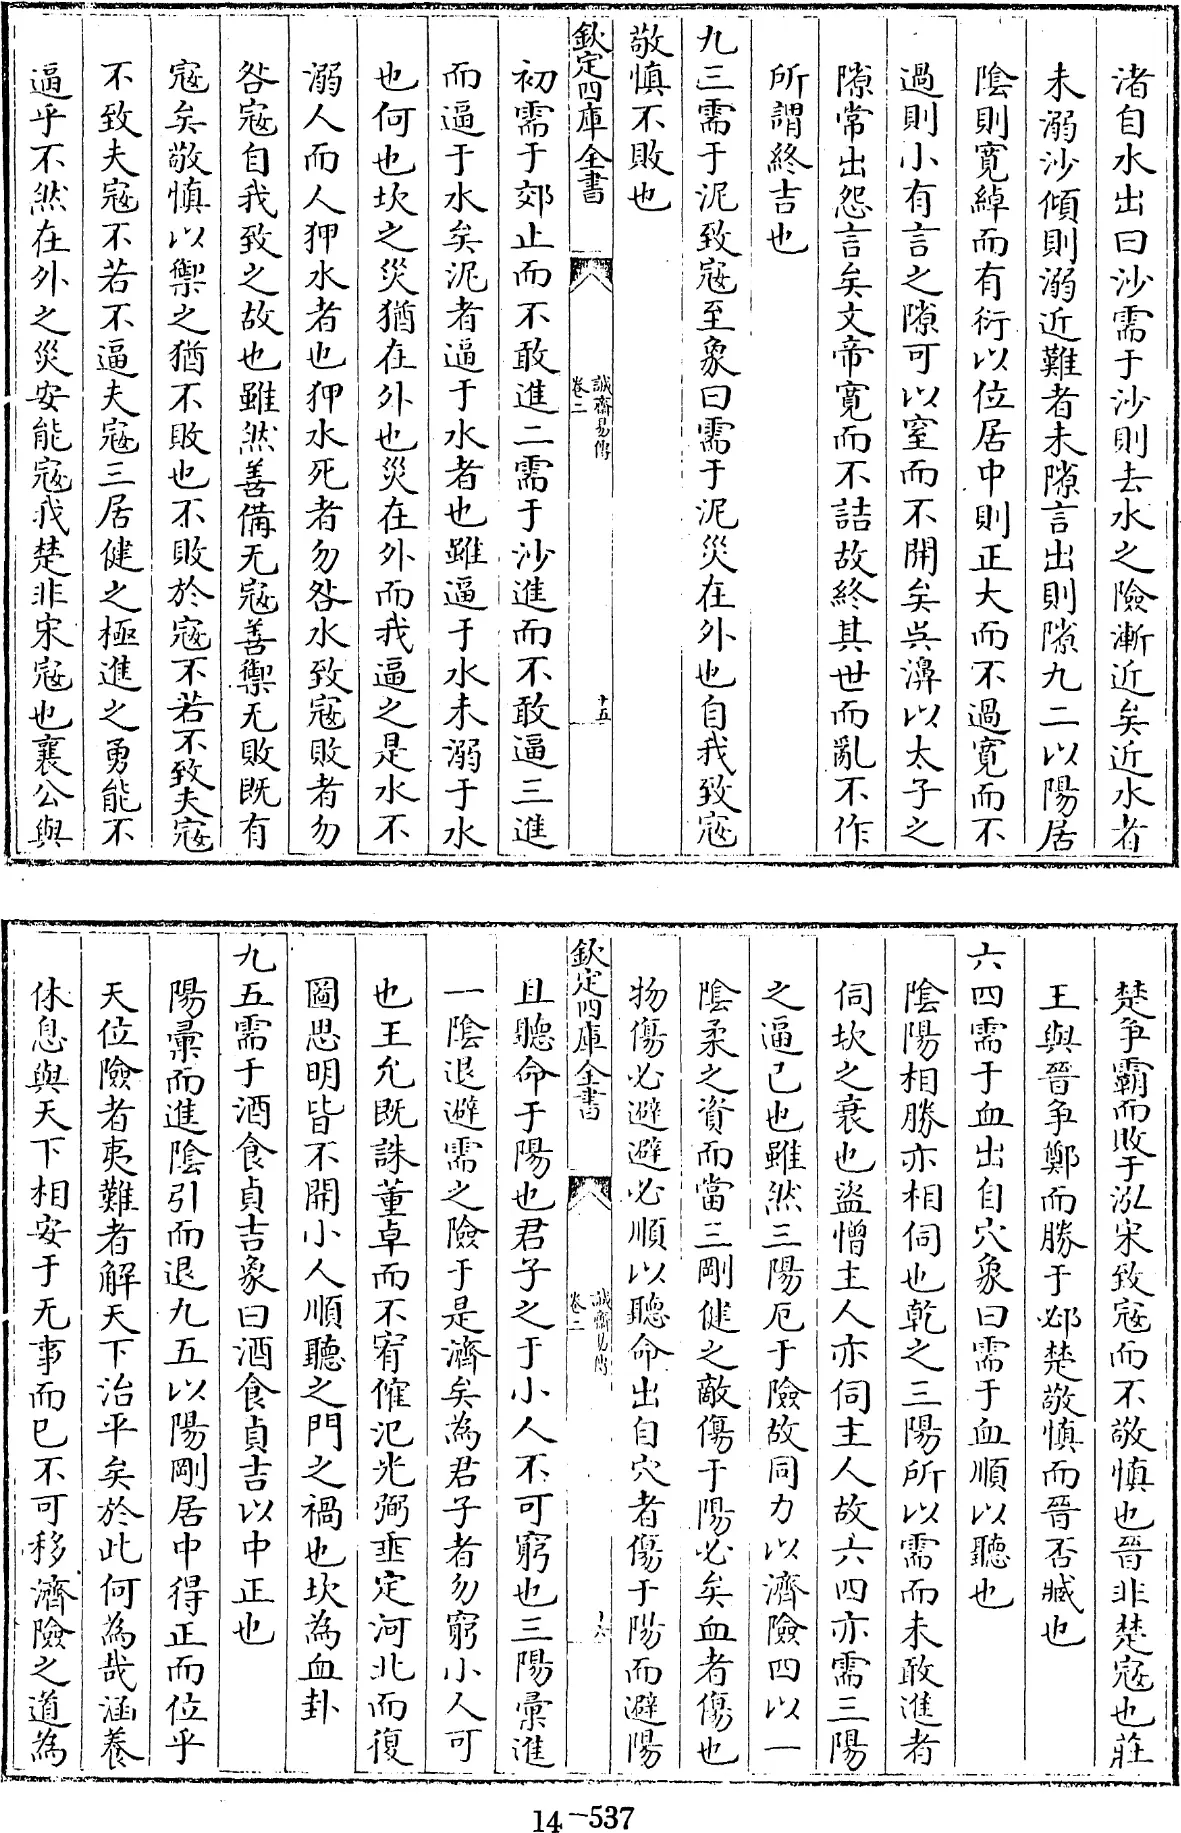 渚自水出曰沙需于沙則去水之險漸近矣近水者
未溺沙傾則溺近難者未隙言出則隙九二以陽居
陰則寛綽而有衍以位居中則正大而不過寛而不
過則小有言之隙可以窒而不開矣呉濞以太子之
隙常出怨言矣文帝寛而不詰故終其世而亂不作
所謂終吉也
九三需于泥致寇至象曰需于泥災在外也自我致寇
敬慎不敗也
欽定四庫全書
誠齋易傳
卷二
十五
初需于郊止而不敢進二需于沙進而不敢逼三進
而逼于水矣泥者逼于水者也雖逼于水未溺于水
也何也坎之災猶在外也災在外而我逼之是水不
溺人而人狎水者也狎水死者勿咎水致寇敗者勿
咎寇自我致之故也雖然善備无寇善禦无敗既有
寇矣敬慎以禦之猶不敗也不敗於寇不若不致夫寇
不致夫寇不若不逼夫寇三居健之極進之勇能不
逼乎不然在外之災安能寇我楚非宋寇也襄公與
楚争霸而敗于泓宋致寇而不敬慎也晉非楚寇也莊
王與晉争鄭而勝于邲楚敬慎而晉否臧也
六四需于血出自穴象曰需于血順以聽也
陰陽相勝亦相伺也乾之三陽所以需而未敢進者
伺坎之衰也盜憎主人亦伺主人故六四亦需三陽
之逼己也雖然三陽厄于險故同力以濟險四以一
陰柔之資而當三剛健之敵傷于陽必矣血者傷也
物傷必避避必順以聽命出自穴者傷于陽而避陽
欽定四庫全書
誠齋易傳
卷二
十六
且聽命于陽也君子之于小人不可窮也三陽彙進
一陰退避需之險于是濟矣為君子者勿窮小人可
也王允既誅董卓而不宥傕汜光弼垂定河北而復
圖思明皆不開小人順聽之門之禍也坎為血卦
九五需于酒食貞吉象曰酒食貞吉以中正也
陽彙而進陰引而退九五以陽剛居中得正而位乎
天位險者夷難者解天下治平矣於此何為哉涵養
休息與天下相安于无事而已不可移濟險之道為
14-537